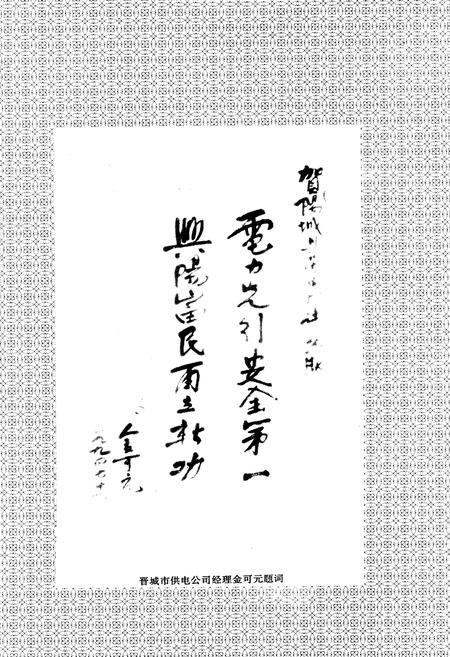 賀陽城
電力先行安全第一
興陽富民再立新功
金可元
一九九六七十
晋城市供电公司经理金可元题词